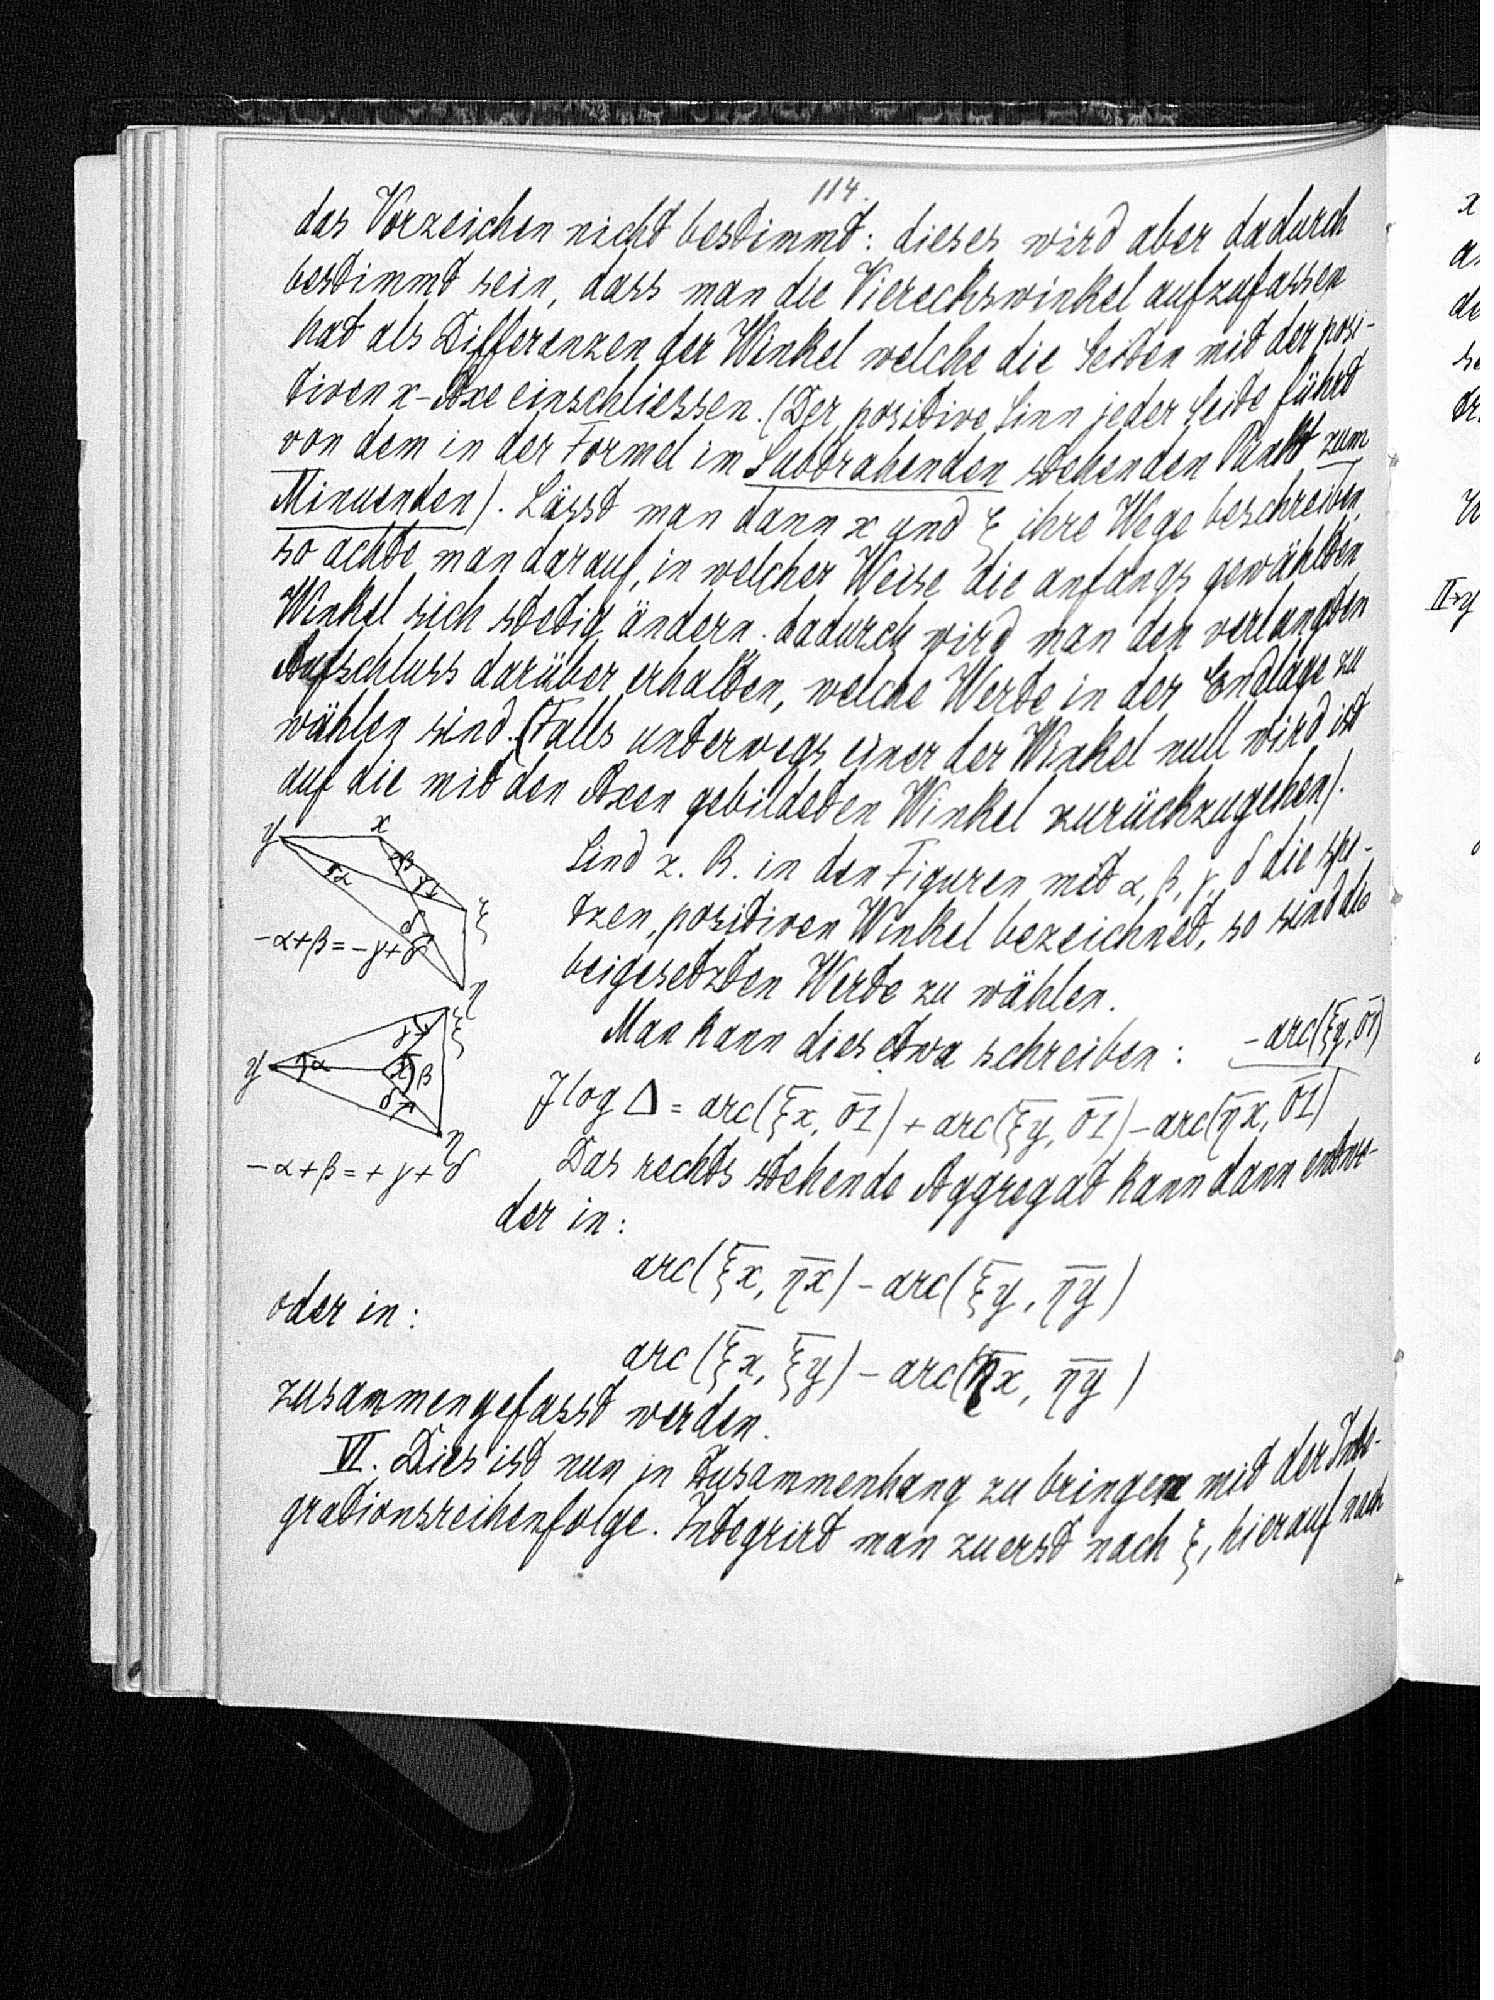 114.
das Vorzeichen nicht bestimmt: dieses wird aber dadurch
bestimmt sein, dass man die Viereckswinkel aufzufassen
hat als Differenzen der Winkel welche die Seiten mit der posi-
tiven x-Axe einschliessen. (Der positive Sinn jeder Seite führt
von dem in der Formel im Subtrahenden stehenden Punkt zum
Minuenden). Lässt man dann x und ξ ihre Wege beschreiben,
so achte man darauf, in welcher Weise die anfangs gewählten
Winkel sich stetig ändern. dadurch wird man den verlangten
Aufschluss darüber erhalten, welche Werte in der Endlage zu
wählen sind. (Falls unterwegs einer der Winkel null wird ist
auf die mit den Axen gebildeten Winkel zurückzugehen).
y x
β
α γ
δ ξ
-α+β=-γ+δ
η
Sind z. B. in den Figuren mit α, β, γ, δ die spi-
tzen, positiven Winkel bezeichnet, so sind die
beigesetzten Werte zu wählen.
ξ
γ
y α x β
δ
η
-α+β=+γ+δ
Man kann dies etwa schreiben: -arc(ξ̅y̅, 0̅1̅)
J log Δ = arc(ξ̅x̅, 0̅1̅) + arc(ξ̅y̅, 0̅1̅) - arc(η̅x̅, 0̅1̅)
Das rechts stehende Aggregat kann dann entwe-
der in:
arc(ξ̅x̅, η̅x̅) - arc(ξ̅y̅, η̅y̅)
oder in:
arc(ξ̅x̅, ξ̅y̅) - arc(η̅x̅, η̅y̅)
zusammengefasst werden.
VI. Dies ist nun in Zusammenhang zu bringen mit der Inte-
grationsreihenfolge. Integrirt man zuerst nach ξ, hierauf nach